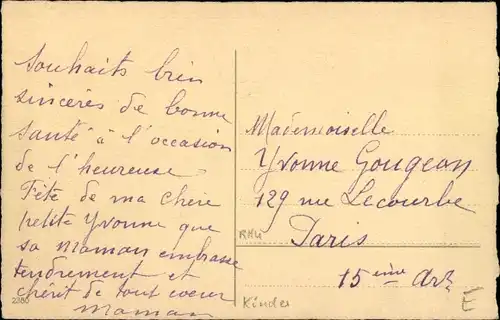 Souhaits bien
sincères de bonne
santé à l'occasion
de l'heureuse
Fête de ma chère
petite Yvonne que
sa Maman embrasse
tendrement et
chérit de tout coeur
Maman
2380
Mademoiselle
Yvonne Gougeon
129 rue Lecourbe
Paris
15ème Arr
Kinder
E